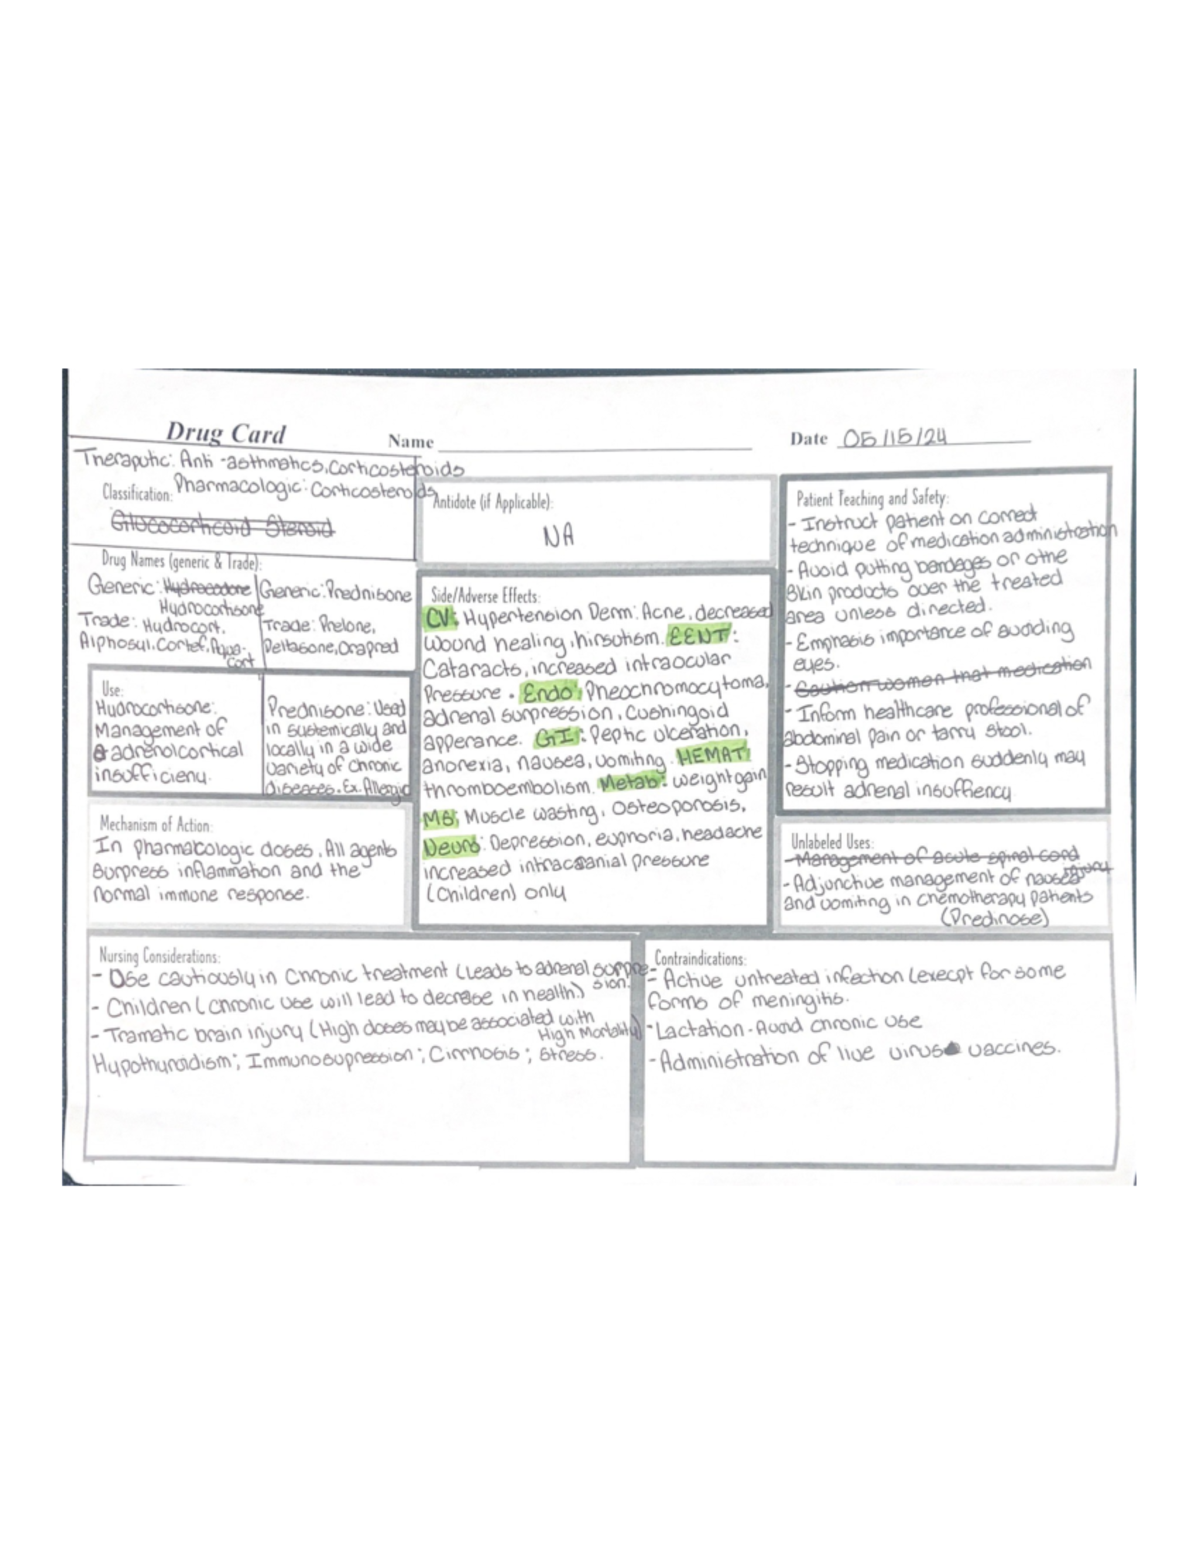 Drug Card
Name
Date 05/15/24
Theraputic: Anti-asthmatics, Corticosteroids
Classification: Pharmacologic: Corticosteroids
Glucocorticoid Steroid
Drug Names (generic & Trade):
Generic: Hydrocodone
Hydrocortisone
Trade: Hydrocort,
Alphosyl, Cortef, Aqua-
Cort
Generic: Prednisone
Trade: Prelone,
Deltasone, Orapred
Use:
Hydrocortisone:
Management of
adrenolcortical
insufficieny.
Prednisone: Used
in systemically and
locally in a wide
variety of chronic
diseases. Ex. Allergic
Mechanism of Action:
In pharmacologic doses, All agents
Surpress inflammation and the
normal immune response.
Antidote (if Applicable):
NA
Side/Adverse Effects:
CV: Hypertension Derm: Acne, decreased
wound healing, hirsutism. EENT:
Cataracts, increased intraocular
Pressure. Endo: Pheochromocytoma,
adrenal surpression, Cushingoid
apperance. GI: Peptic ulceration,
anorexia, nausea, vomiting. HEMAT:
thromboembolism. Metab: weight gain
MS: Muscle wasting, Osteoporosis,
Neuro: Depression, euphoria, headache
increased intracranial pressure
(Children) only
Patient Teaching and Safety:
- Instruct patient on correct
technique of medication administration
- Avoid putting bandages or othe
Skin products over the treated
area unless directed.
- Emphasis importance of avoiding
eyes.
- Caution women that medication
- Inform healthcare professional of
abdominal pain or tarry stool.
- Stopping medication suddenly may
result adrenal insuffiency
Unlabeled Uses:
- Management of acute spinal cord
injury
- Adjunctive management of nausea
and vomiting in chemotherapy patients
(Predinose)
Nursing Considerations:
- Use cautiously in Chronic treatment (leads to adrenal suppre-
sion.
- Children (chronic use will lead to decrease in health)
- Tramatic brain injury (High doses may be associated with
High Mortality)
Hypothyroidism; Immunosupression; Cirrhosis; Stress.
Contraindications:
- Active untreated infection (execpt for some
forms of meningitis.
- Lactation - Avoid chronic use
- Administration of live virus vaccines.